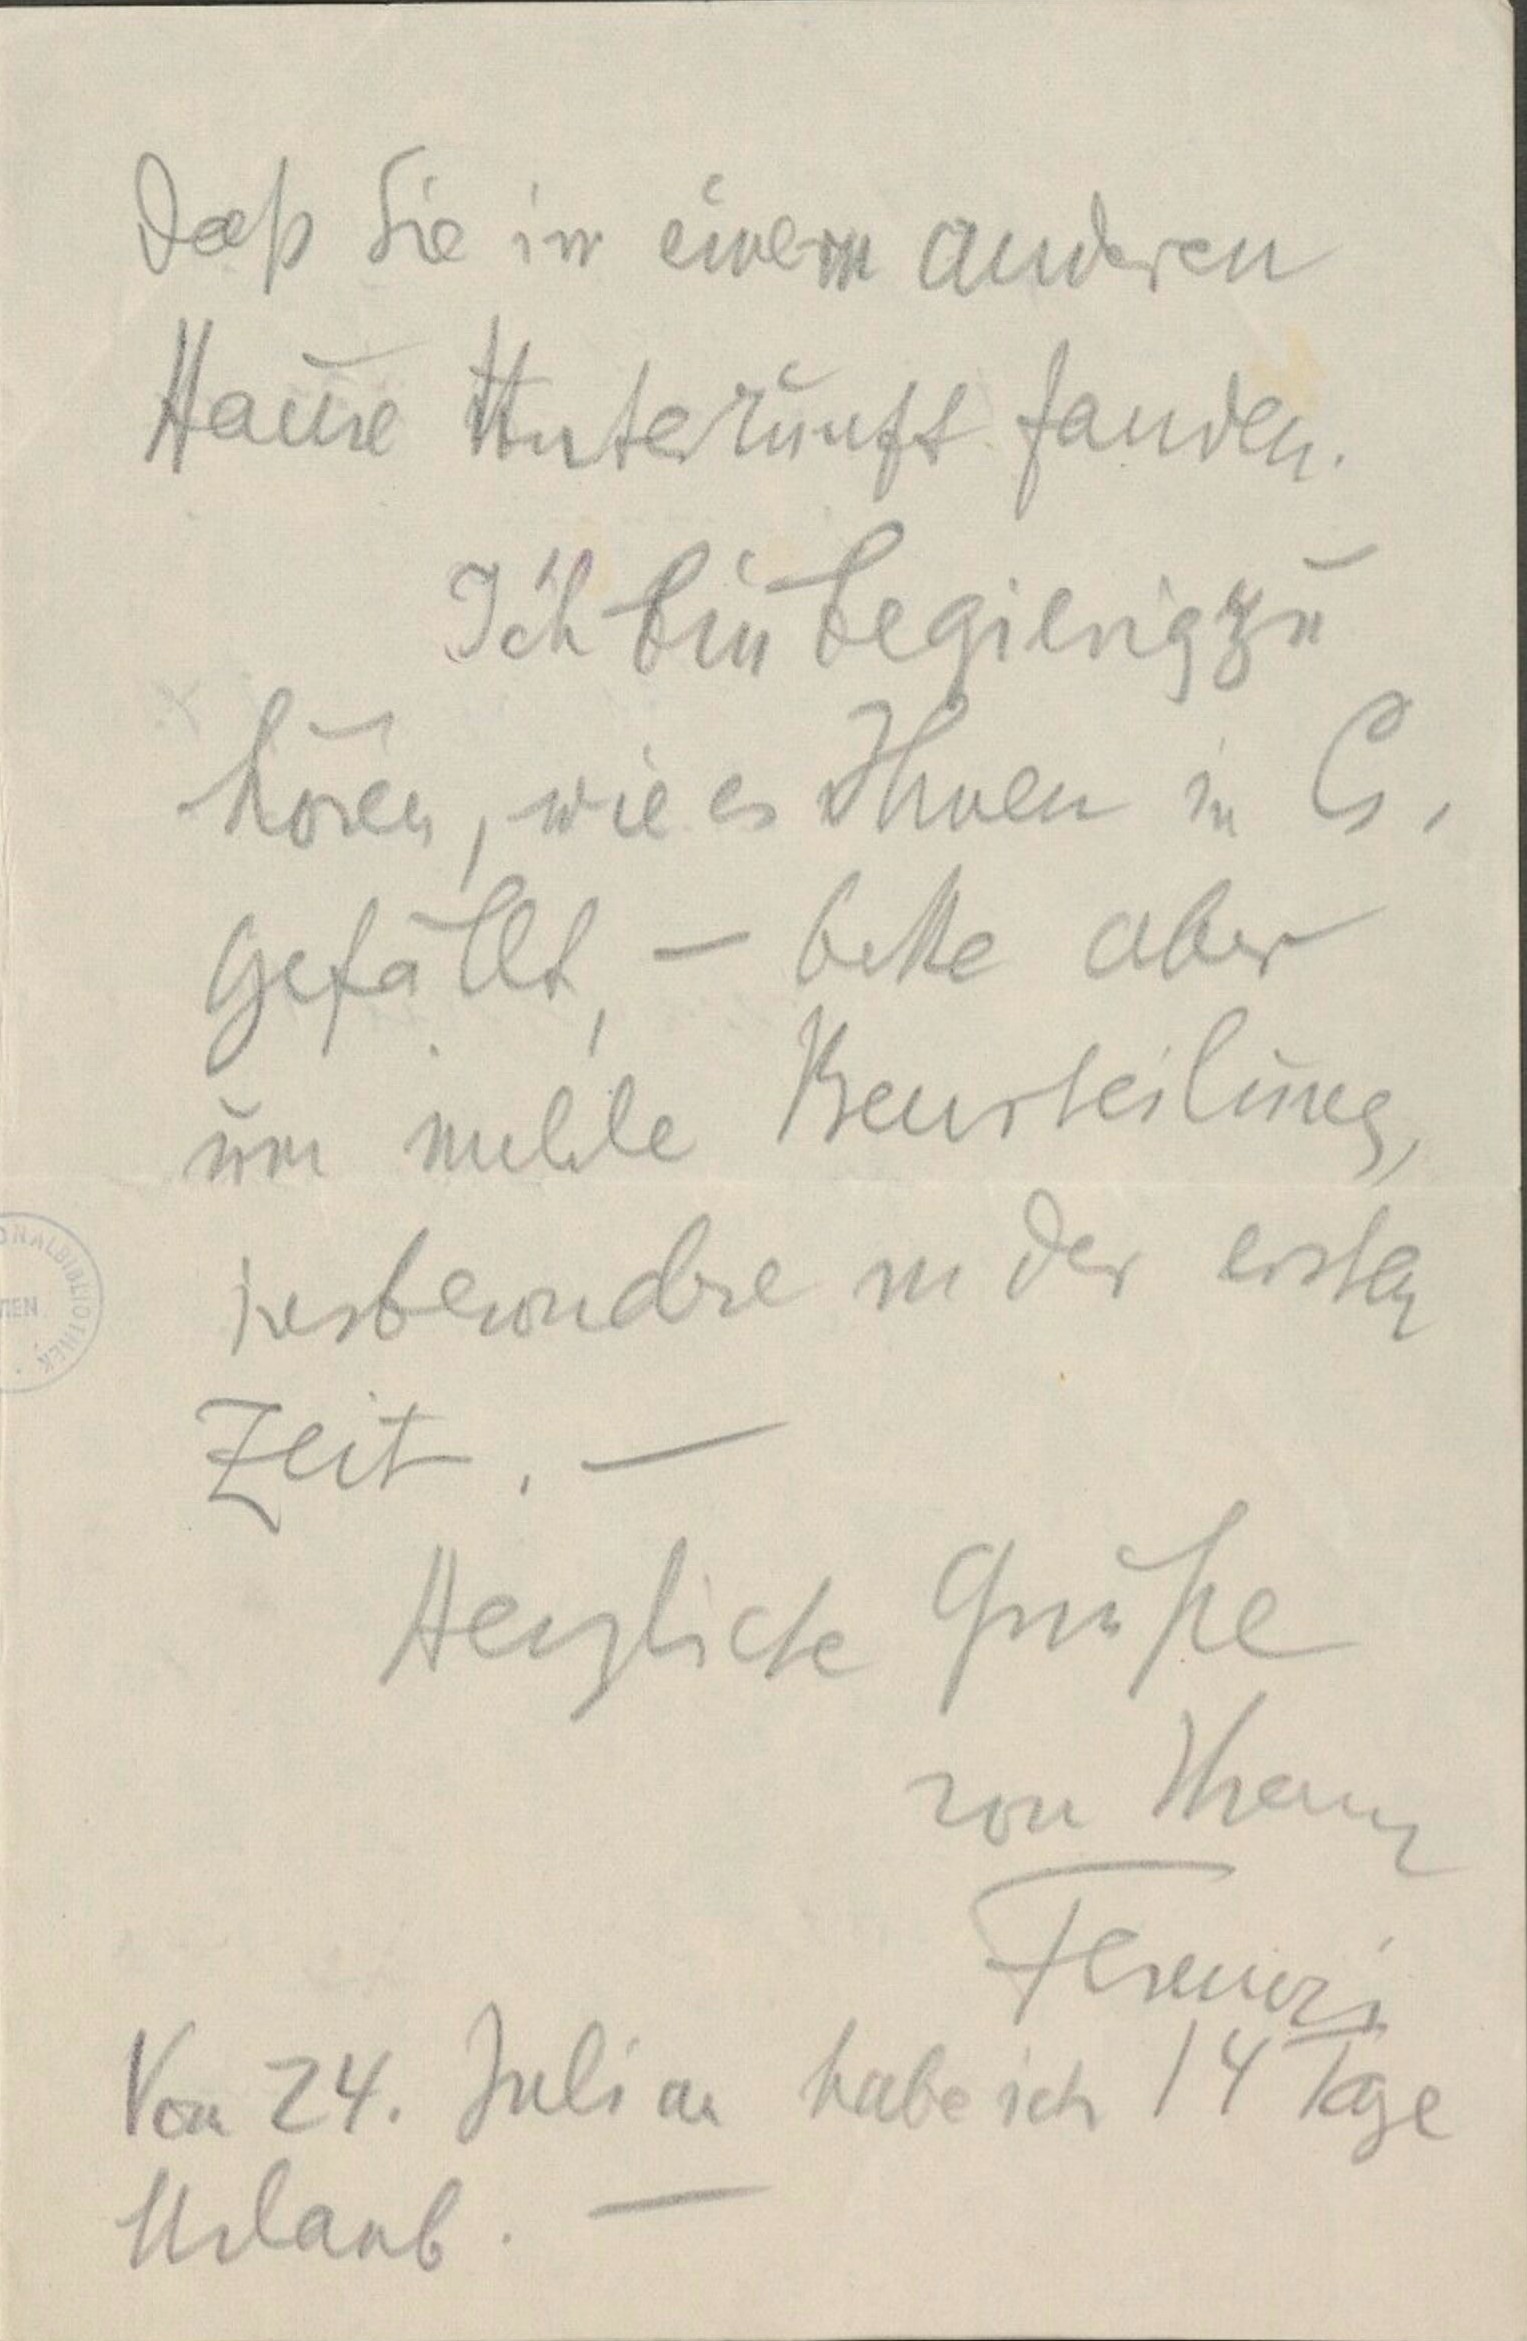 daß Sie in einem anderen
Hause Unterunft fanden.
Ich bin begierig zu
hören, wie es Ihnen in Cs.
gefällt, – bitte aber
um milde Beurteilung,
insbesondre in der ersten
Zeit. –
Herzliche Grüße
von Ihrem
Ferenczi
Von 24. Juli an habe ich 14 Tage
Urlaub. –
ONALBIBLIOTHEK
IEN